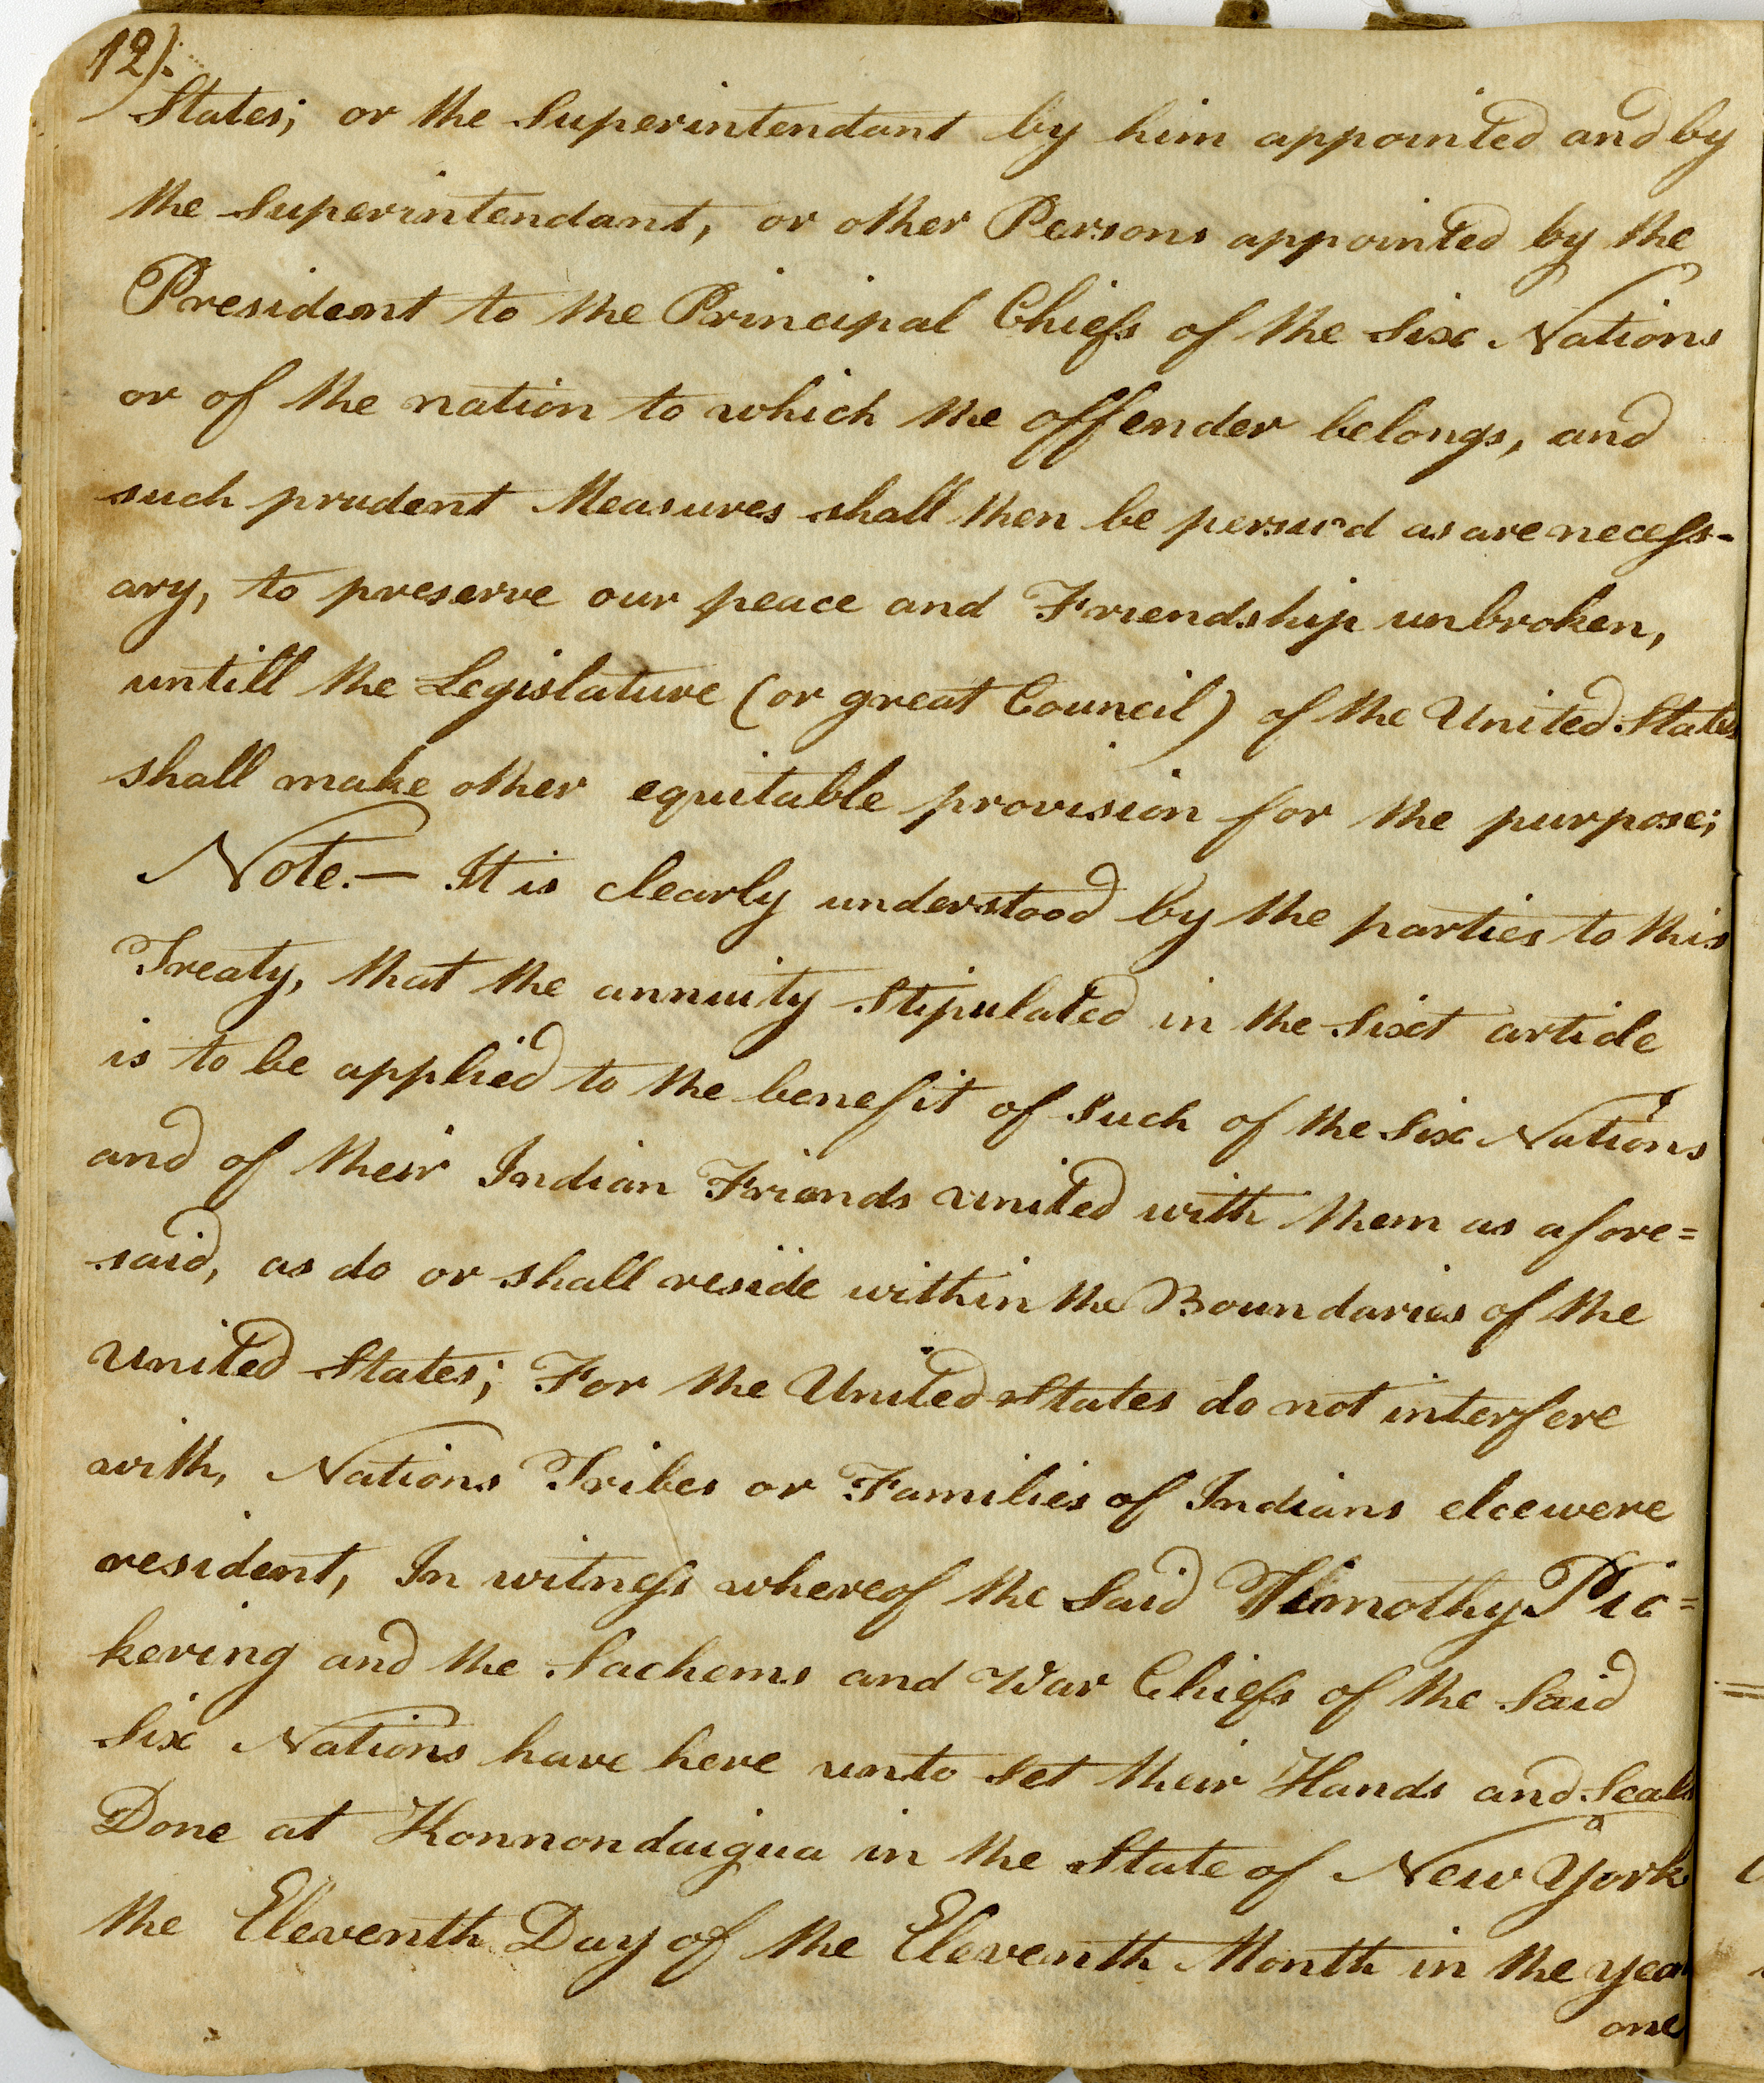 12).
States; or the Superintendant by him appointed and by
the Superintendant, or other Persons appointed by the
President to the Principal Chiefs of the Six Nations
or of the nation to which the offender belongs, and
such prudent Measures shall then be persu'd as are necess-
ary, to preserve our peace and Friendship unbroken,
untill the Legislature (or great Council) of the United States
shall make other equitable provision for the purpose;
Note.— It is clearly understood by the parties to this
Treaty, that the annuity Stipulated in the Sixt article
is to be applied to the benefit of Such of the Six Nations
and of their Indian Friends united with them as afore=
said, as do or shall reside within the Boundaries of the
United States; For the United States do not interfere
with, Nations Tribes or Families of Indians elcewere
resident, In witness whereof the Said Timothy Pic=
kering and the Sachems and War Chiefs of the Said
Six Nations have here unto Set their Hands and Seals
Done at Konnondaigua in the State of New York
the Eleventh Day of the Eleventh Month in the year
one